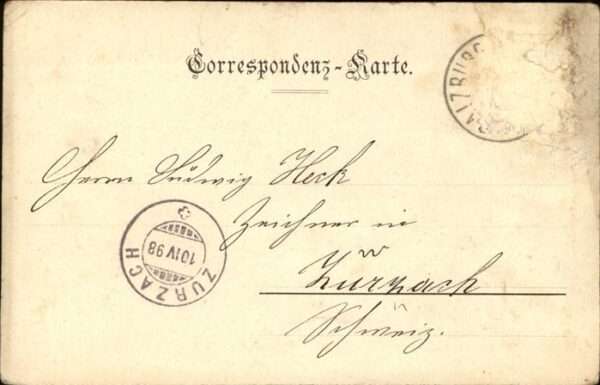 Correspondenz-Karte.
SALZBURG
Herrn Ludwig Heck
Zeichner in
Zurzach
Schweiz.
ZURZACH
10 IV 98